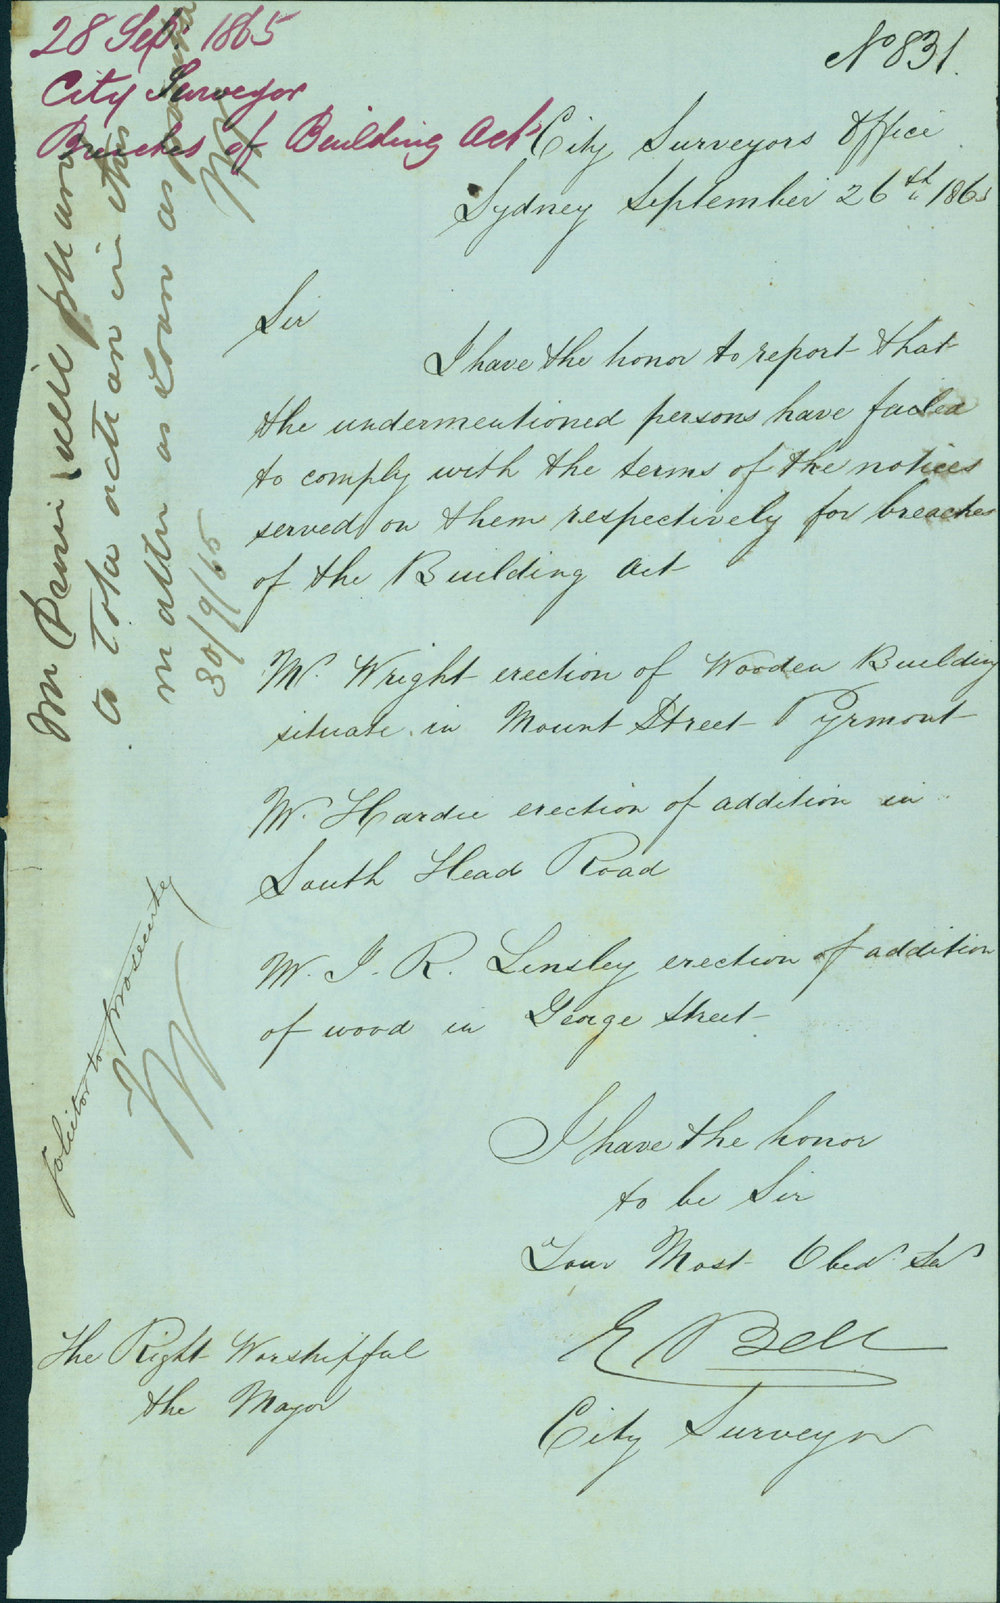 28 Sep. 1865
City Surveyor
Breaches of Building Act
No 831.
City Surveyors Office
Sydney September 26th 1865
Sir
I have the honor to report that
the undermentioned persons have failed
to comply with the terms of the notices
served on them respectively for breaches
of the Building Act
Mr. Wright erection of Wooden Building
situate in Mount Street Pyrmont
Mr. Hardie erection of addition in
South Head Road
Mr. J. R. Linsley erection of addition
of wood in George Street
I have the honor
to be Sir
Your Most Obed. Ser
E Bell
City Surveyor
The Right Worshipful
the Mayor
Mr will
to take action in this
matter as soon as
30/9/65
Solicitor to prosecute